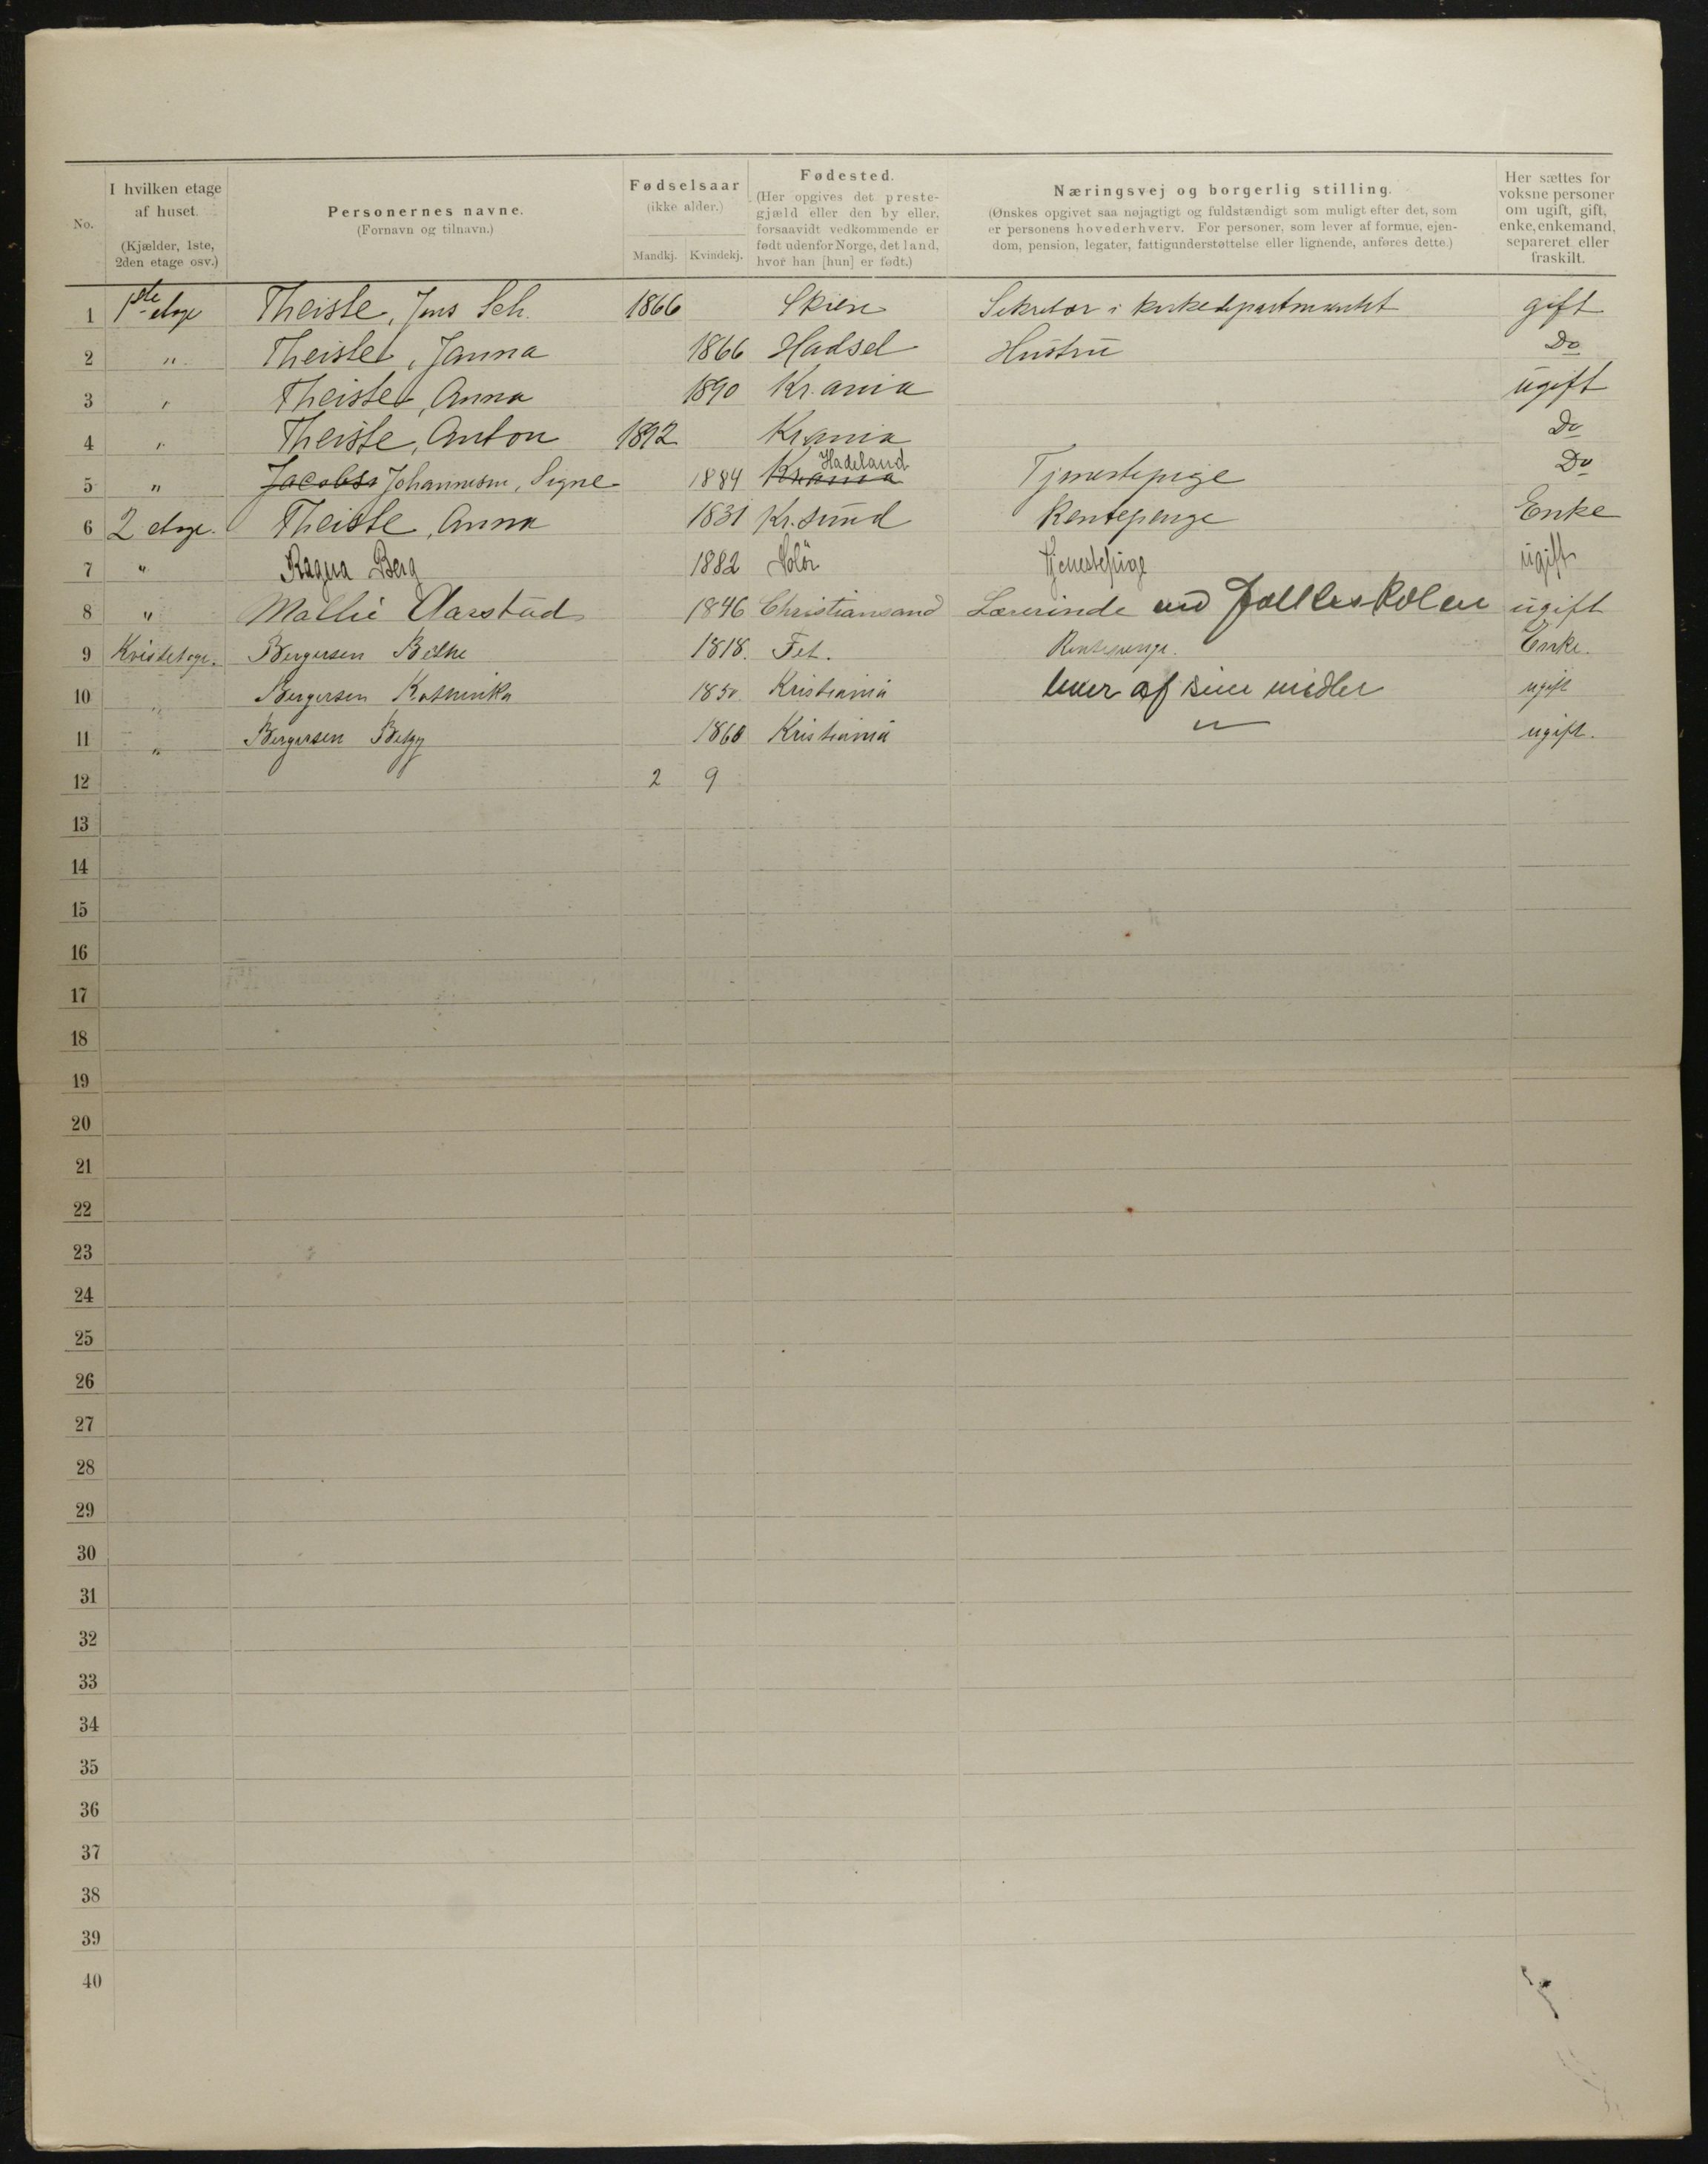 No.
I hvilken etage
af huset.
(Kjælder, 1ste,
2den etage osv.)
Personernes navne.
(Fornavn og tilnavn.)
Fødselsaar
(ikke alder.)
Mandkj. Kvindekj.
Fødested.
(Her opgives det preste-
gjæld eller den by eller,
forsaavidt vedkommende er
født udenfor Norge, det land,
hvor han [hun] er født.)
Næringsvej og borgerlig stilling.
(Ønskes opgivet saa nøjagtigt og fuldstændigt som muligt efter det, som
er personens hovederhverv. For personer, som lever af formue, ejen-
dom, pension, legater, fattigunderstøttelse eller lignende, anføres dette.)
Her sættes for
voksne personer
om ugift, gift,
enke, enkemand,
separeret eller
fraskilt.
1 1ste etage Theiste, Jens Sch. 1866 Skien Sekretær i kirkedepartmentet gift
2 " Theiste, Janna 1866 Hadsel Hustru Do
3 " Theiste, Anna 1890 Kr.ania ugift
4 " Theiste, Anton 1892 Kr.ania Do
5 " Jacobs Johannesen, Signe 1884 Krania Hadeland Tjenestepige Do
6 2 etage. Theiste, Anna 1831 Kr.sund Rentepenge Enke
7 " Ragna Berg 1882 Solör Tjenestepige ugift
8 " Mallie Aarstad 1846 Christiansand Lærerinde ved Folkeskolen ugift
9 Kvistetage. Bergersen Belne 1818. Fet. Rentepenge. Enke.
10 " Bergersen Kathinka 1850. Kristiania lever af sine midler ugift
11 " Bergersen Betzy 1860 Kristiania " ugift.
12 2 9
13
14
15
16
17
18
19
20
21
22
23
24
25
26
27
28
29
30
31
32
33
34
35
36
37
38
39
40